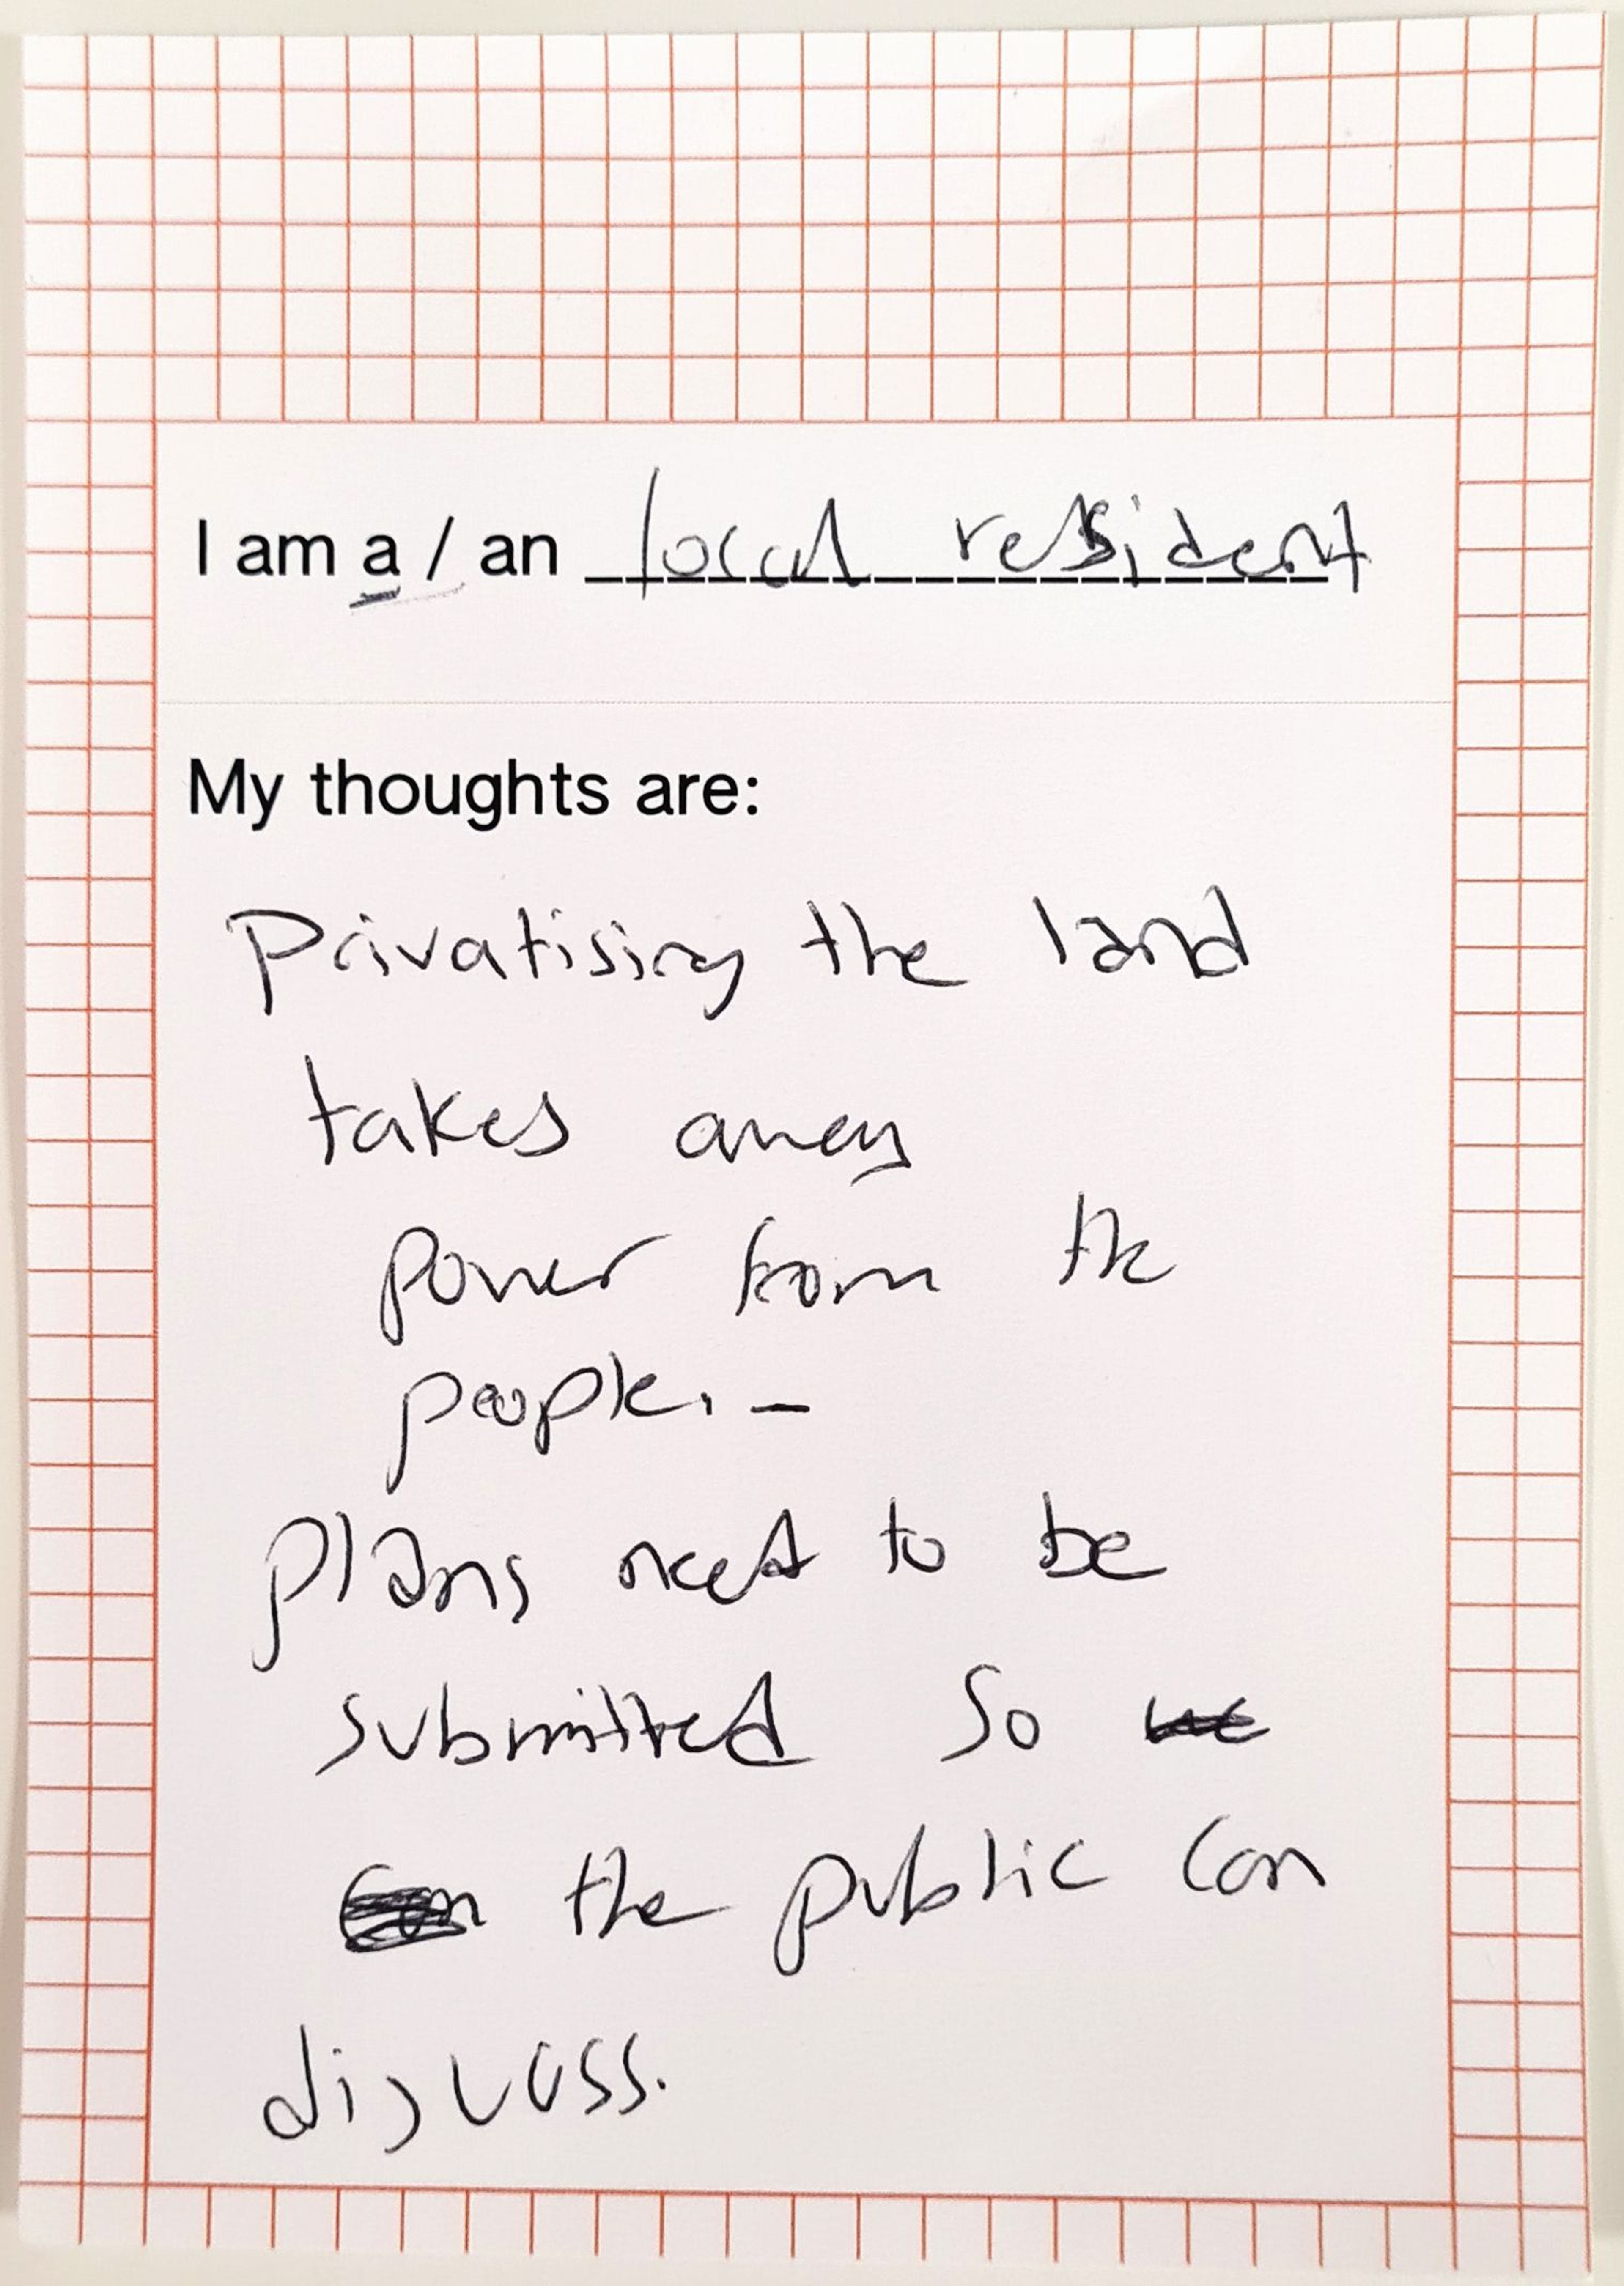 I am a / an local resident
My thoughts are:
Privatising the land
takes away
power from the
people. –
plans need to be
submitted so we
can the public can
discuss.